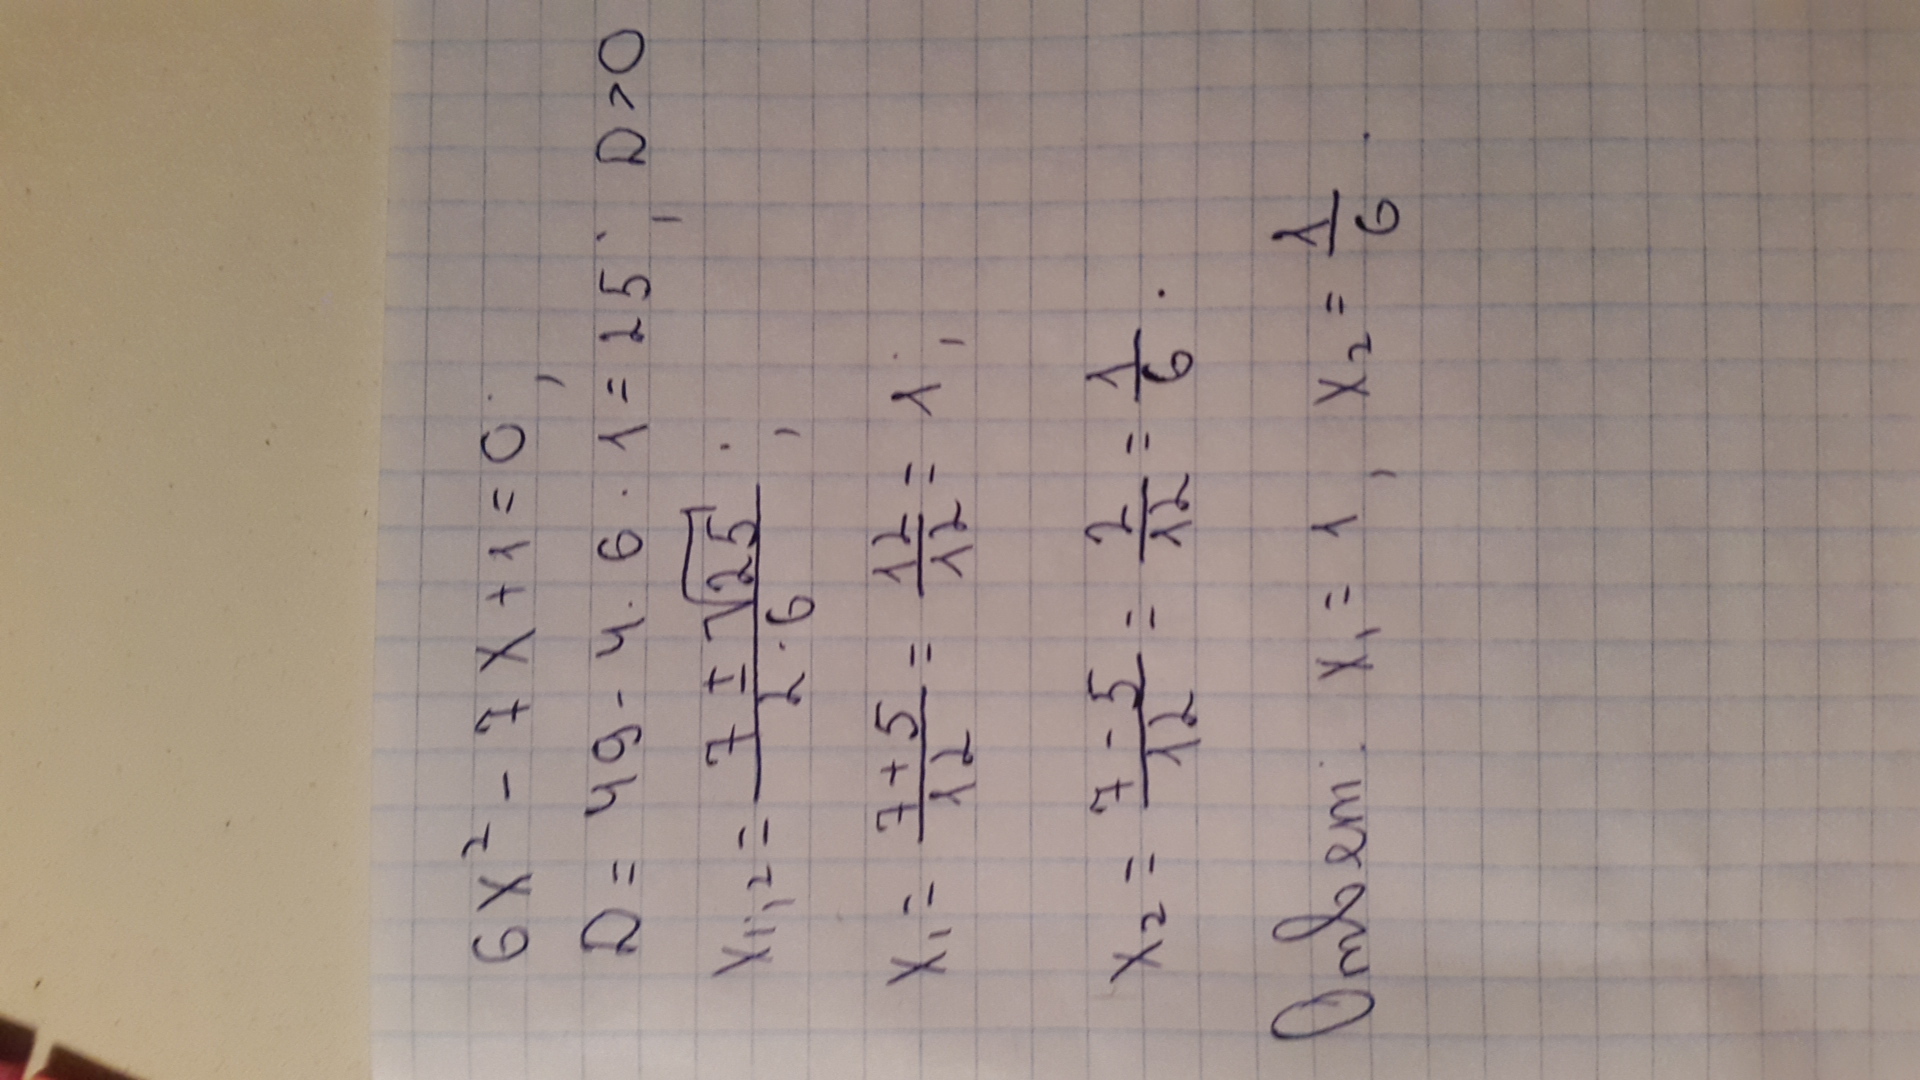 6x² - 7x + 1 = 0;
D = 49 - 4 · 6 · 1 = 25; D > 0
x₁,₂ = (7 ± √25) / (2 · 6);
x₁ = (7 + 5) / 12 = 12/12 = 1;
x₂ = (7 - 5) / 12 = 2/12 = 1/6.
Ответ. x₁ = 1, x₂ = 1/6.